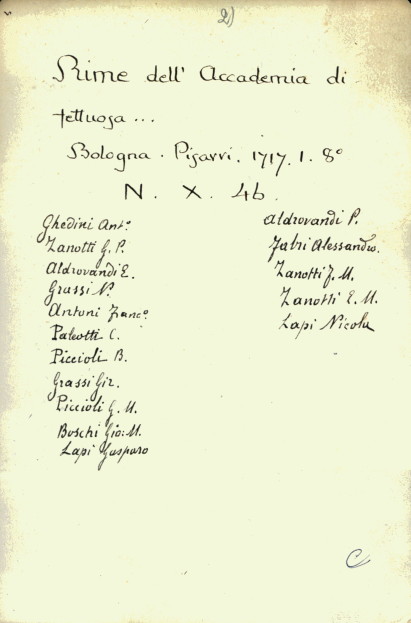 2)
Rime dell' Accademia di
fettuosa...
Bologna. Pisarri. 1717. 1. 8°
N. X. 46.
Ghedini Ant.°
Zanotti G. P.
Aldrovandi E.
Grassi N.
Antoni Franc.°
Paleotti C.
Piccioli B.
Grassi Gir.
Piccioli G. M.
Boschi Gio: M.
Lapi Gasparo
Aldrovandi P.
Fabri Alessandro.
Zanotti F. M.
Zanotti E. M.
Lapi Nicola
C